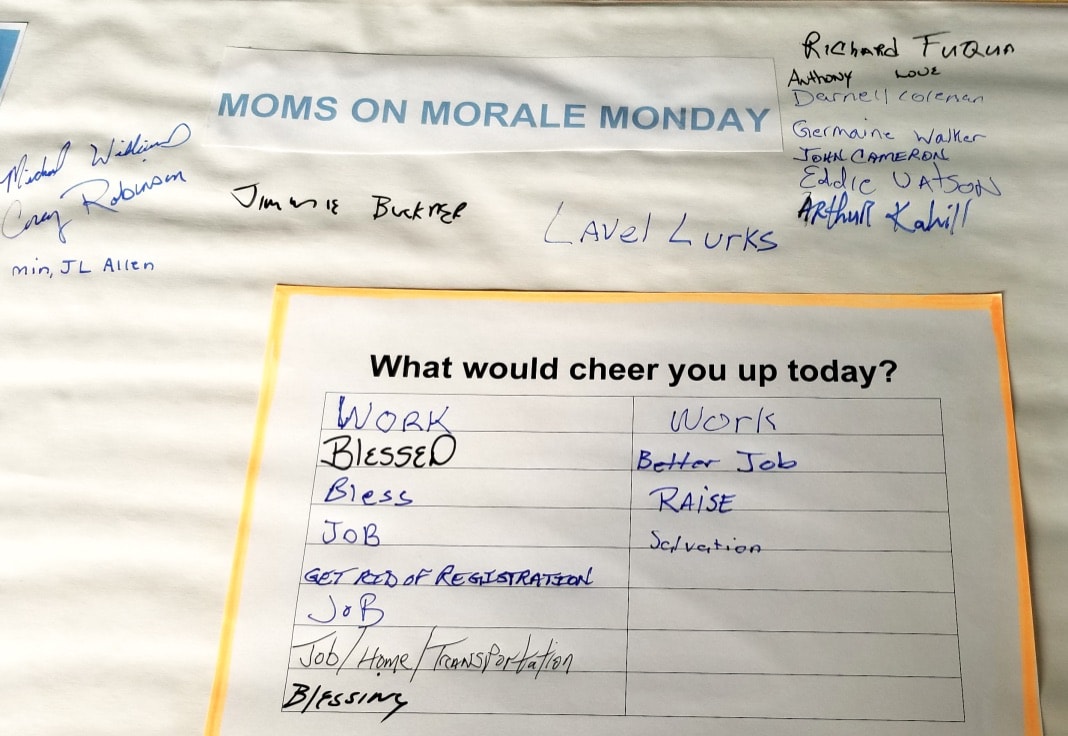 MOMS ON MORALE MONDAY
Richard Fuqua
Anthony Love
Darnell Coleman
Germaine Walker
JOHN CAMERON
Eddie WATSON
ARthuR Kahill
Michael Williams
Corey Robinson
min, JL Allen
Jimmie Buckner
LAVel LURKS
What would cheer you up today?
WORK Work
BLESSED Better Job
Bless RAISE
JOB Salvation
GET RID OF REGISTRATION
JOB
Job/Home/TRANSPortation
Blessing